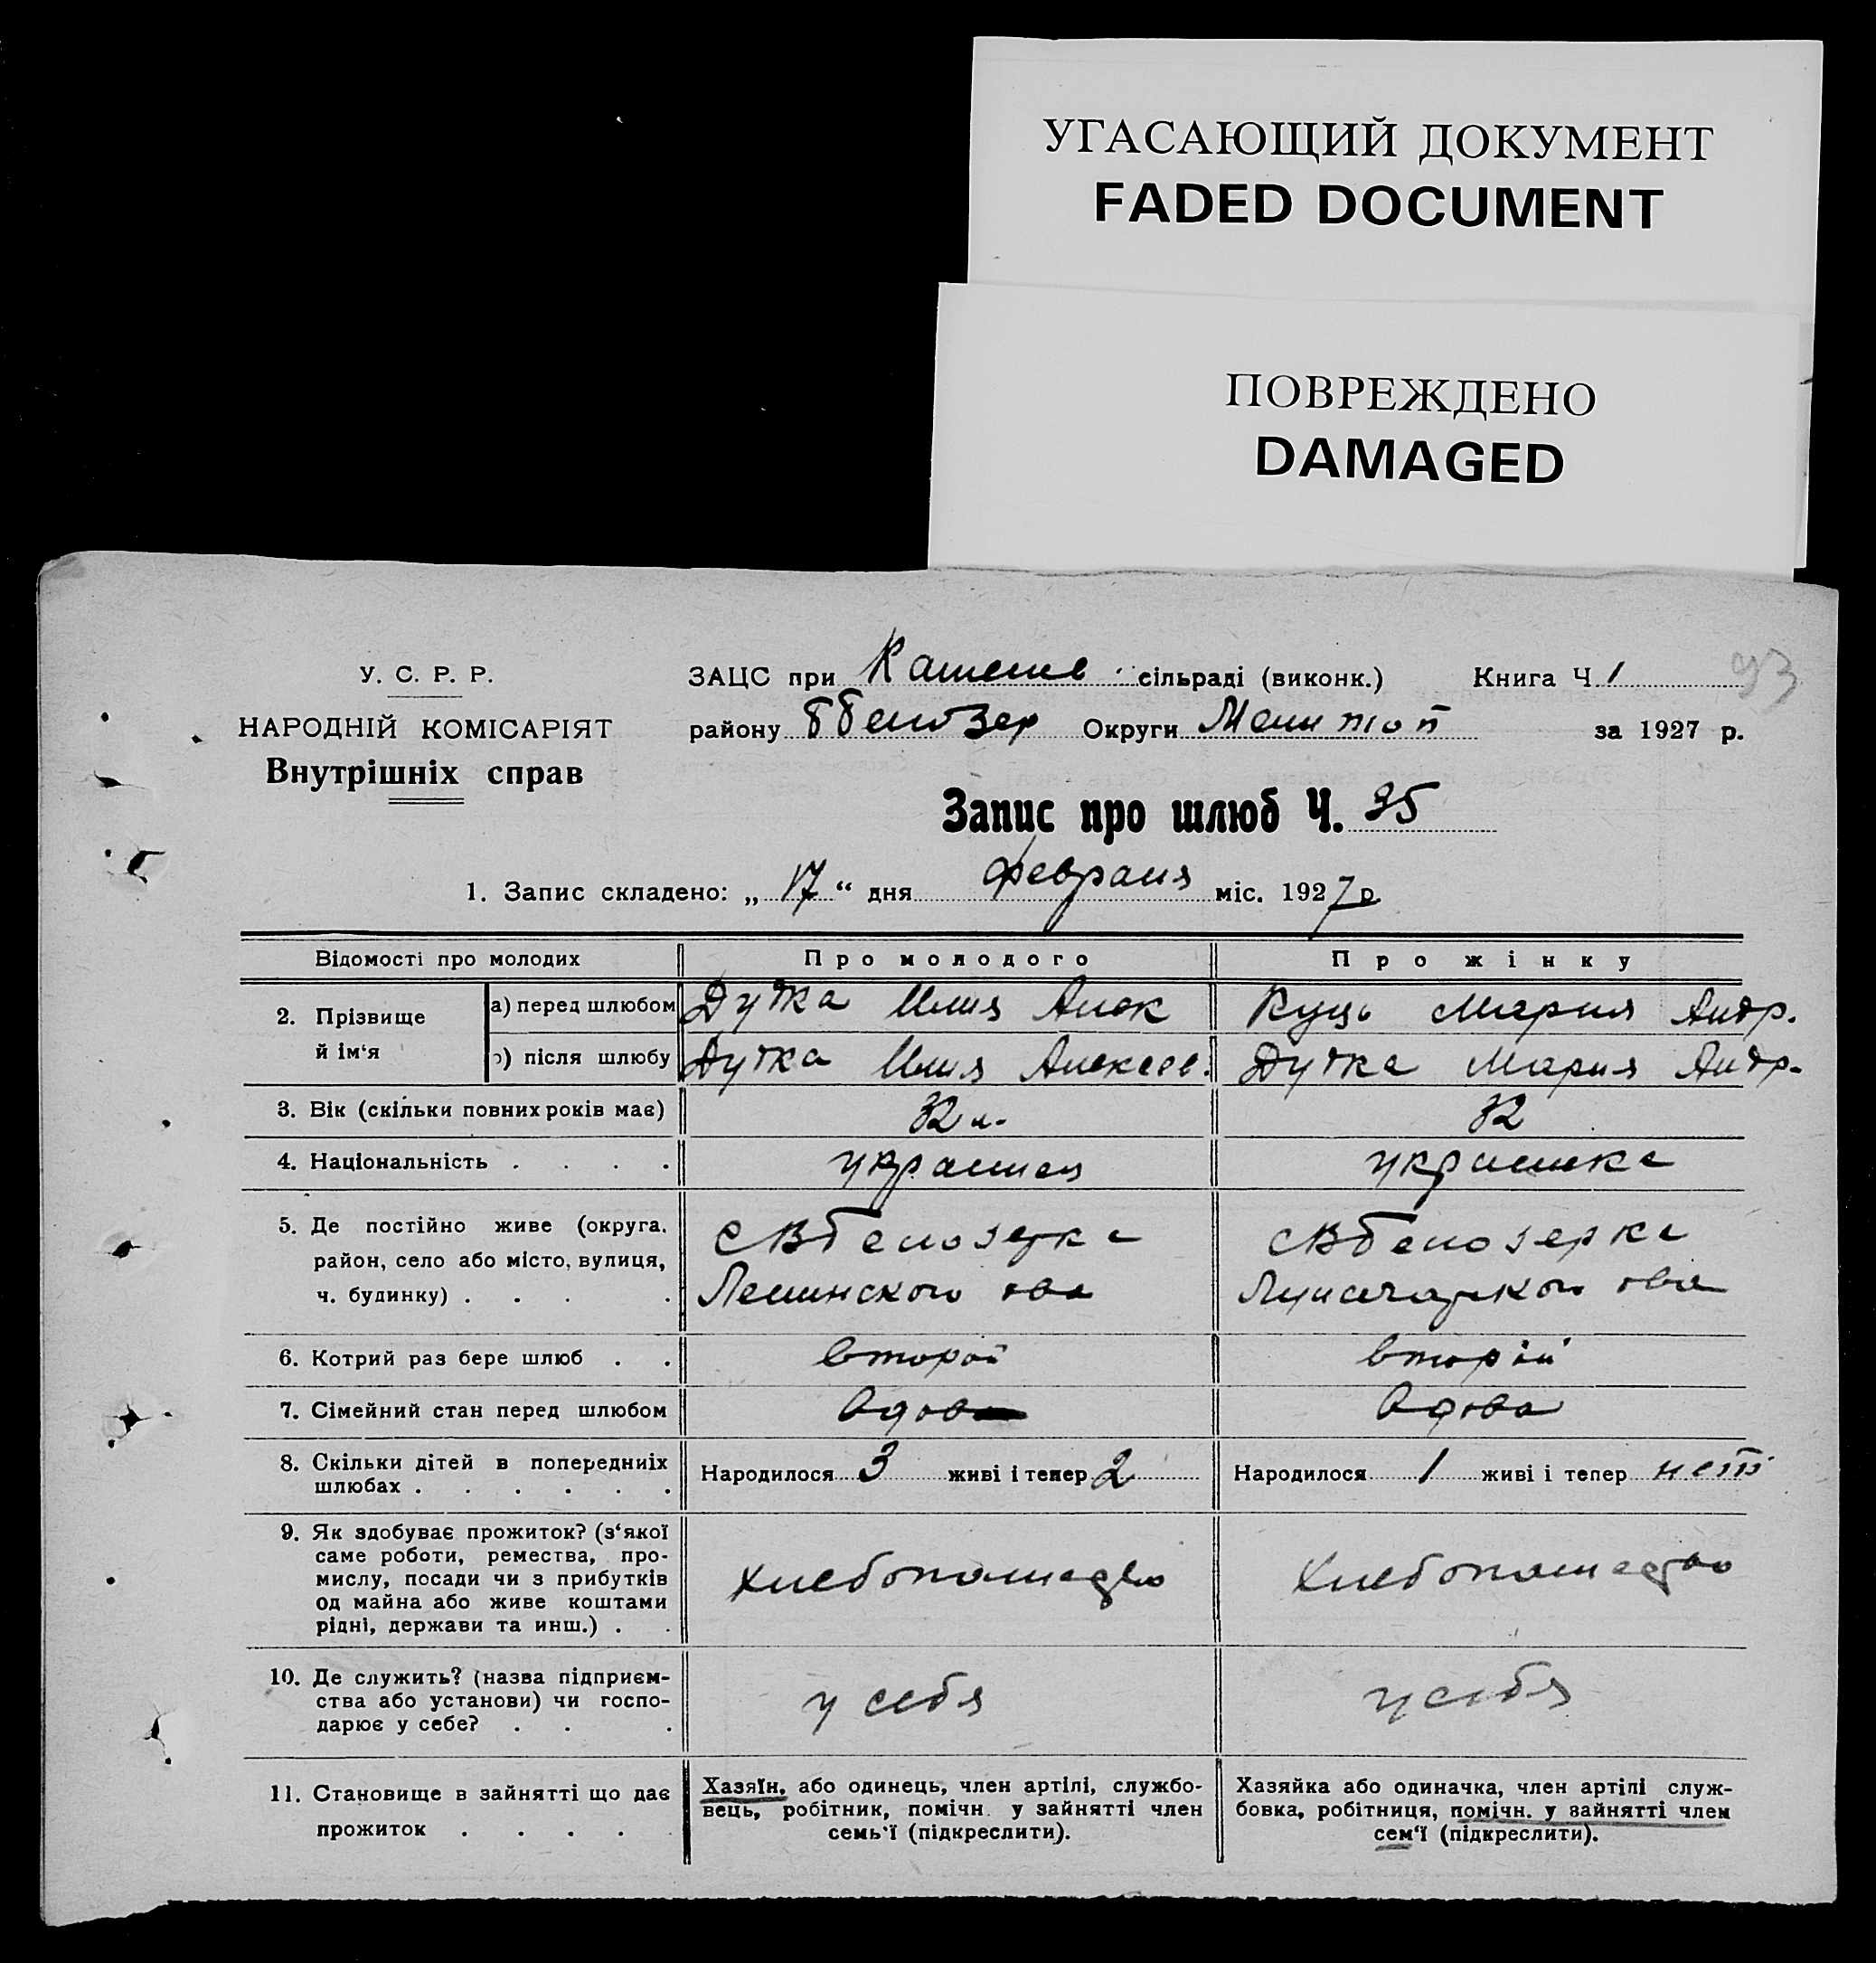 УГАСАЮЩИЙ ДОКУМЕНТ
FADED DOCUMENT
ПОВРЕЖДЕНО
DAMAGED
93
У. С. Р. Р.
НАРОДНІЙ КОМІСАРІЯТ
Внутрішніх справ
ЗАЦС при сільраді (виконк.) Книга Ч 1
району Ббелозер Округи Мелитоп за 1927 р.
Запис про шлюб Ч. 35
1. Запис складено: „ 17 “ дня февраля міс. 1927 р
Відомості про молодих Про молодого Про жінку
2. Прізвище й ім‘я
а) перед шлюбом Дутка Илия Алек Куць Мария Андр.
б) після шлюбу Дутка Илия Алексее. Дутка Мария Андр.
3. Вік (скільки повних років має) 32 л. 32
4. Національність . . . . украинец украинка
5. Де постійно живе (округа, СВбелозерка СВбелозерка
район, село або місто, вулиця,
ч. будинку) . . . . Ленинского ова Луначарского ова
6. Котрий раз бере шлюб . . второй второй
7. Сімейний стан перед шлюбом вдов вдова
8. Скільки дітей в попередниіх
шлюбах . . . . . . Народилося 3 живі і тепер 2 Народилося 1 живі і тепер нет
9. Як здобуває прожиток? (з‘якої
саме роботи, ремества, про-
мислу, посади чи з прибутків
од майна або живе коштами
рідні, держави та инш.) . . хлебопашество хлебопашество
10. Де служить? (назва підприєм-
ства або установи) чи госпо-
дарює у себе? . . . у себя у себя
11. Становище в зайнятті що дає
прожиток . . . . .
Хазяїн, або одинець, член артілі, службо-
вець, робітник, помічн. у зайнятті член
семь‘ї (підкреслити).
Хазяйка або одиначка, член артілі служ-
бовка, робітниця, помічн. у зайнятті член
сем‘ї (підкреслити).